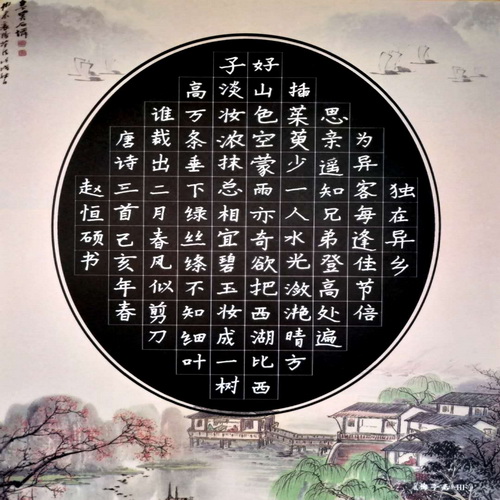 独在异乡
为异客每逢佳节倍
思亲遥知兄弟登高处遍
插茱萸少一人水光潋滟晴方
好山色空蒙雨亦奇欲把西湖比西
子淡妆浓抹总相宜碧玉妆成一树
高万条垂下绿丝绦不知细叶
谁裁出二月春风似剪刀
唐诗三首己亥年春
赵恒硕书